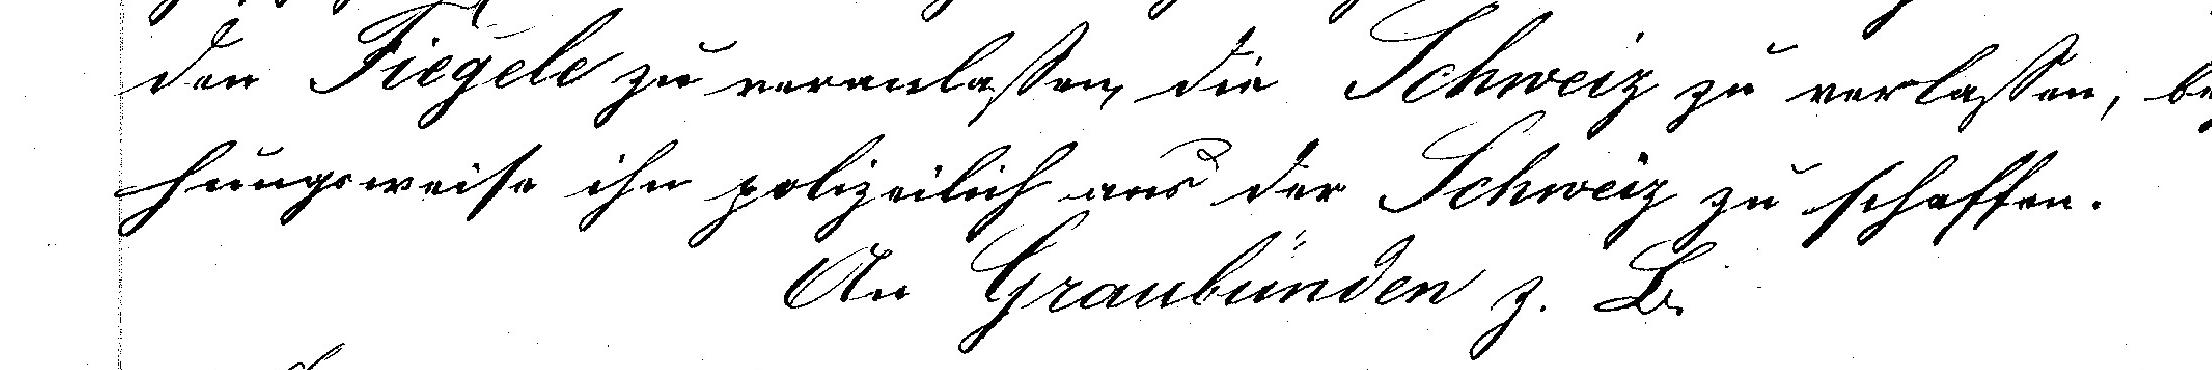 den Fiegele zu veranlaßen, die Schweiz zu verlaßen, be
hungsweise ihn polizeilich aus der Schweiz zu schaffen.
An Graubünden z. B.